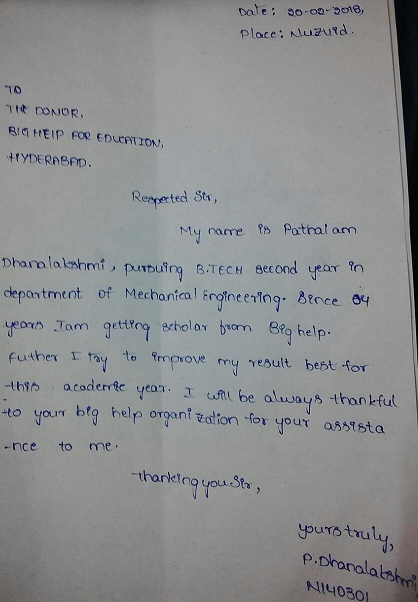 Date: 20-02-2018,
Place: Nuzvid.
TO
THE DONOR,
BIG HElP FOR EDUCATION,
HYDERABAD.
Respected Sir,
My name is Pathalam
Dhanalakshmi, pursuing B.TECH second year in
department of Mechanical Engineering. Since 04
years Iam getting scholar from Big help.
Futher I try to improve my result best for
this academic year. I will be always thankful
to your big help organization for your assista
-nce to me.
Thanking you Sir,
yours truly,
P.Dhanalakshmi
N140301